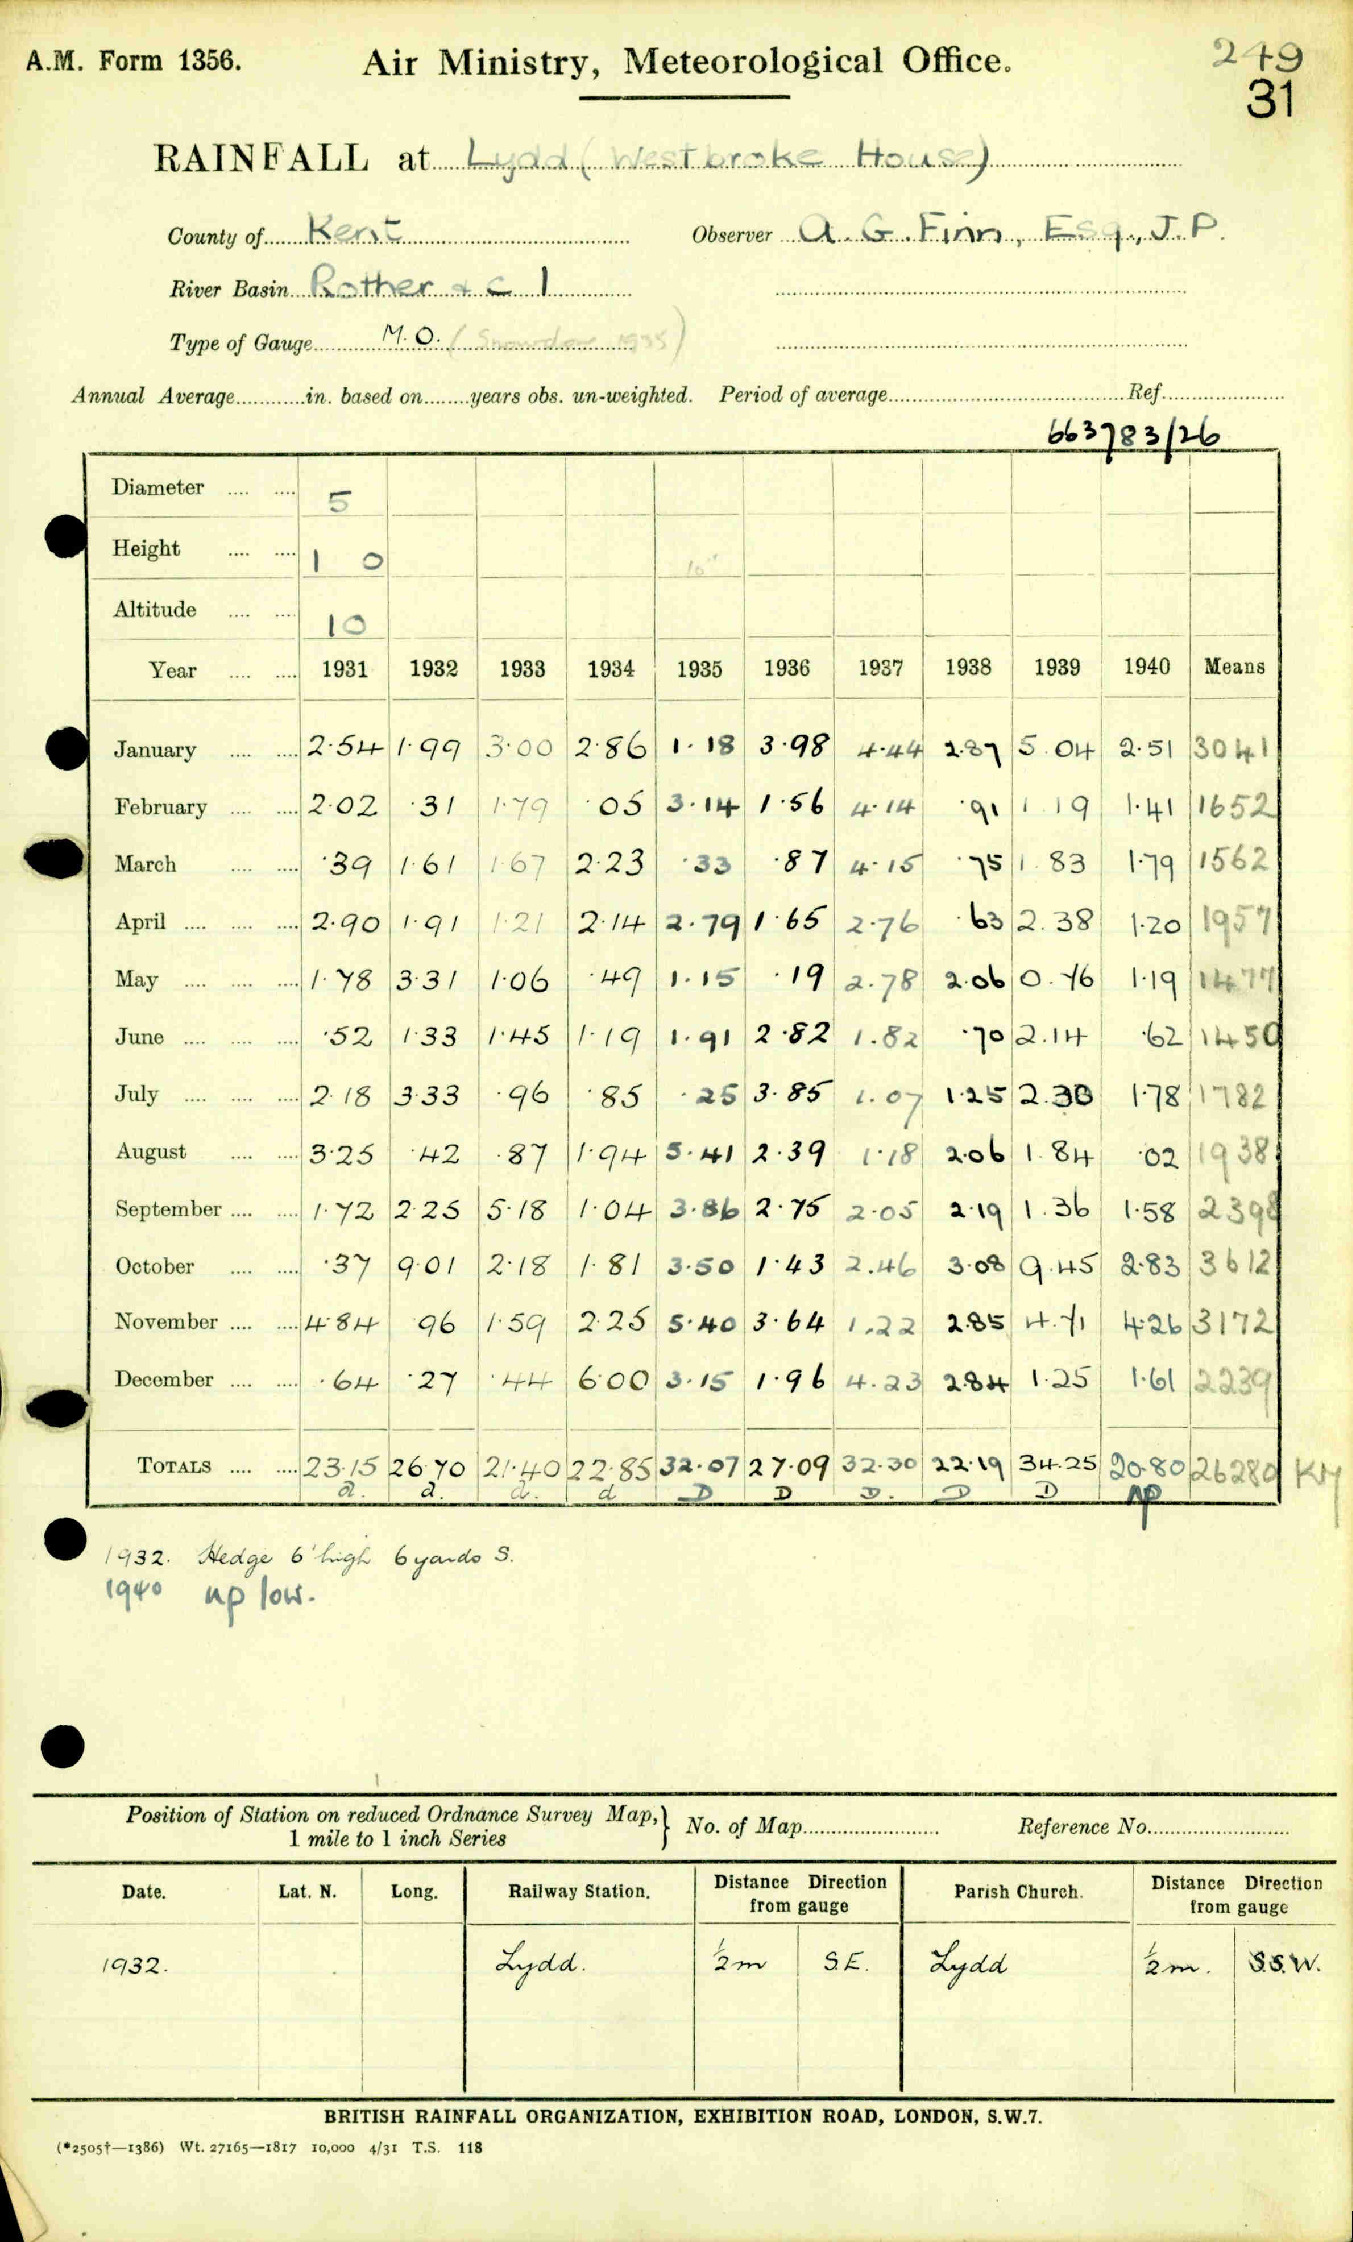 A.M. Form 1356. Air Ministry, Meteorological Office. 249
31
RAINFALL at Lydd (Westbroke House)
County of Kent Observer A. G. Finn, Esq., J.P.
River Basin Rother & C 1
Type of Gauge M.O. (Snowdon 1935)
Annual Average in. based on years obs. un-weighted. Period of average Ref.
663783/26
Diameter 5
Height 1 0 10"
Altitude 10
Year 1931 1932 1933 1934 1935 1936 1937 1938 1939 1940 Means
January 2.54 1.99 3.00 2.86 1.18 3.98 4.44 2.87 5.04 2.51 3041
February 2.02 .31 1.79 .05 3.14 1.56 4.14 .91 1.19 1.41 1652
March .39 1.61 1.67 2.23 .33 .87 4.15 .75 1.83 1.79 1562
April 2.90 1.91 1.21 2.14 2.79 1.65 2.76 .63 2.38 1.20 1957
May 1.78 3.31 1.06 .49 1.15 .19 2.78 2.06 0.76 1.19 1477
June .52 1.33 1.45 1.19 1.91 2.82 1.82 .70 2.14 .62 1450
July 2.18 3.33 .96 .85 .25 3.85 1.07 1.25 2.30 1.78 1782
August 3.25 .42 .87 1.94 5.41 2.39 1.18 2.06 1.84 .02 1938
September 1.72 2.25 5.18 1.04 3.86 2.75 2.05 2.19 1.36 1.58 2398
October .37 9.01 2.18 1.81 3.50 1.43 2.46 3.08 9.45 2.83 3612
November 4.84 .96 1.59 2.25 5.40 3.64 1.22 2.85 4.71 4.26 3172
December .64 .27 .44 6.00 3.15 1.96 4.23 2.84 1.25 1.61 2239
TOTALS 23.15 26.70 21.40 22.85 32.07 27.09 32.30 22.19 34.25 20.80 26280 KM
a. a. d. d D D D. D D np
1932. Hedge 6' high 6 yards S.
1940 np low.
Position of Station on reduced Ordnance Survey Map,} No. of Map Reference No.
1 mile to 1 inch Series
Date. Lat. N. Long. Railway Station. Distance Direction from gauge Parish Church. Distance Direction from gauge
1932. Lydd. ½ m S.E. Lydd ½ m. S.S.W.
BRITISH RAINFALL ORGANIZATION, EXHIBITION ROAD, LONDON, S.W.7.
(*2505†—1386) Wt. 27165—1817 10,000 4/31 T.S. 118